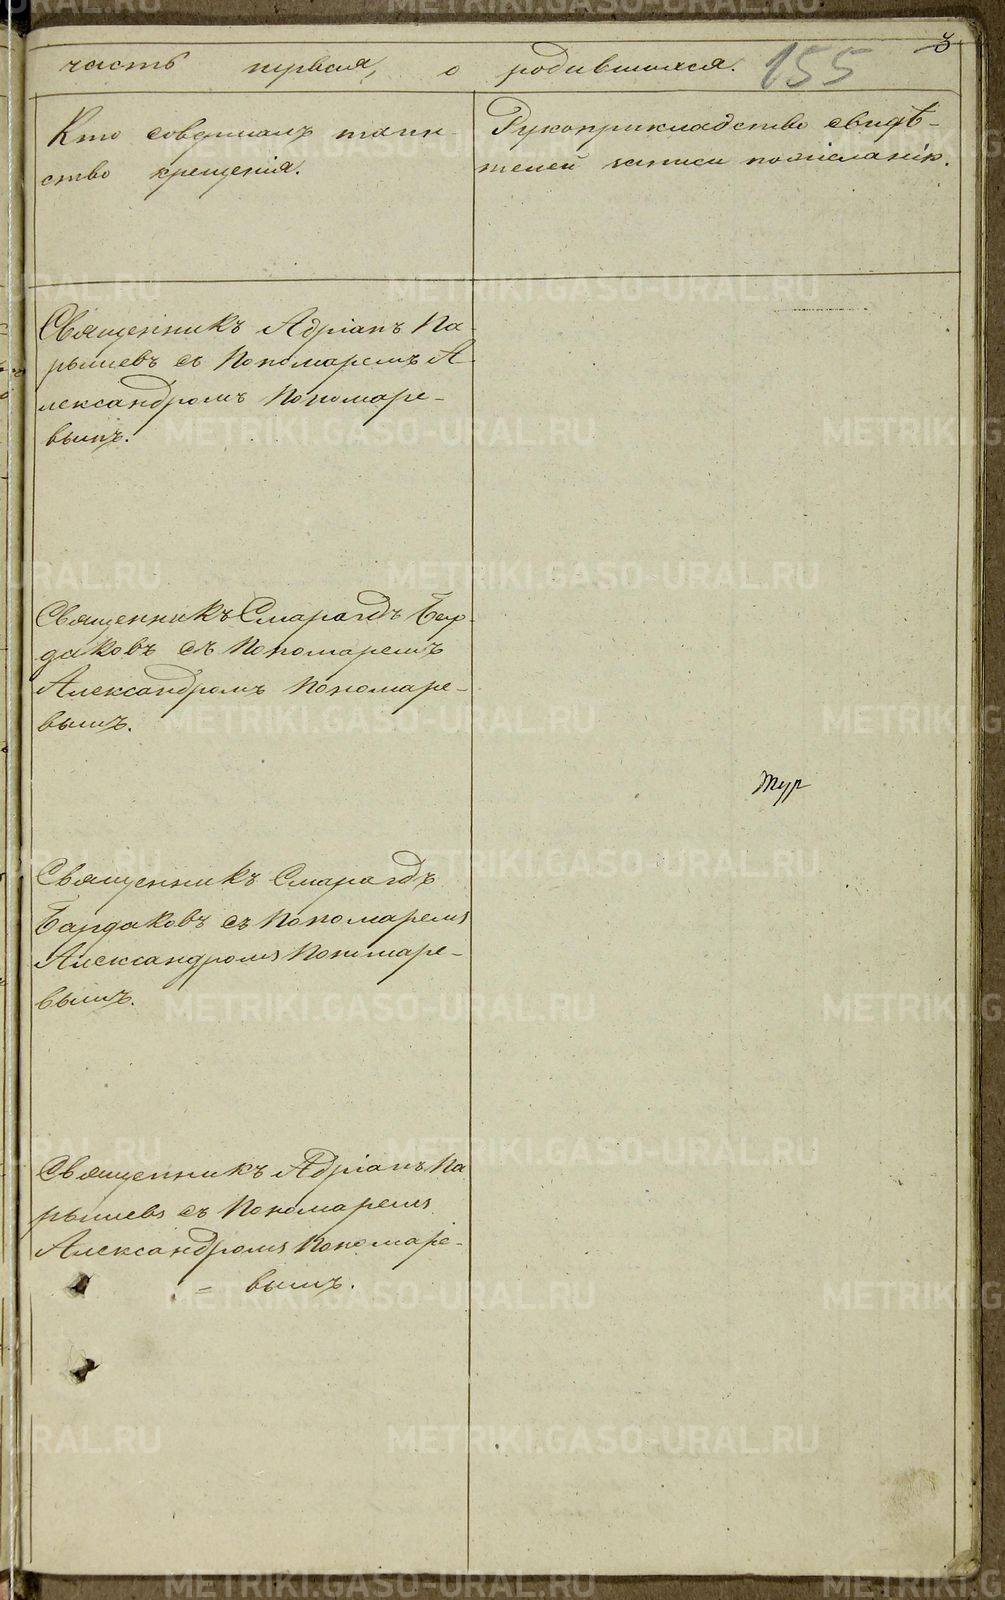 часть первая, о родившихся. 155
3
Кто совершалъ таин-
ство крещенія.
Рукоприкладство свидѣ-
телей записи по желанію.
Священникъ Адріанъ Па-
рышевъ съ Пономаремъ А
лександромъ Пономаре-
вымъ.
Священникъ Смарагдъ Бар-
даковъ съ Пономаремъ
Александромъ Пономаре-
вымъ.
Священникъ Смарагдъ
Бардаковъ съ Пономаремъ
Александромъ Пономаре-
вымъ.
Священникъ Адріанъ Па
рышевъ съ Пономаремъ
Александромъ Пономаре-
= вымъ.
METRIKI.GASO-URAL.RU